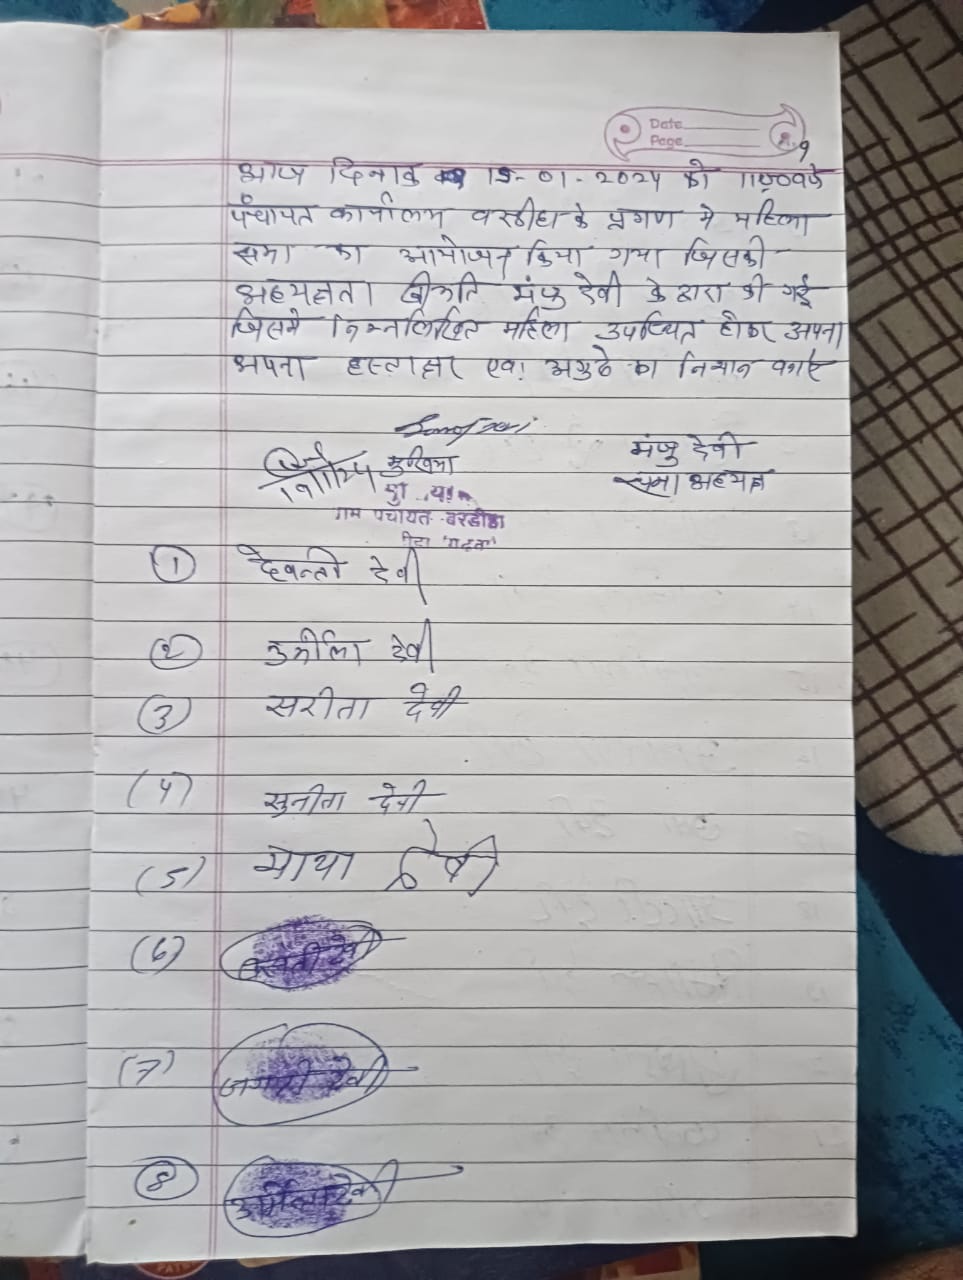 Date
Page
9
आज दिनांक 15-01-2024 को
पंचायत कार्यालय वरडीहा के प्रगण मे महिला
सभा का आयोजन किया गया जिसकी
अध्यक्षता श्रीमति मंजु देवी के द्वारा की गई
जिसमे निम्नलिखित महिला उपस्थित होकर अपना
अपना हस्ताक्षर एवं अगुठे का निशान बनाए
मुखिया
मंजु देवी
सभा अध्यक्ष
पंचायत
1 देवन्ती देवी
2 उर्मीला देवी
(3) सरीता देवी
(4) सुनीता देवी
(5) माया देवी
(6) देवी
(7) देवी
8 उर्मिला देवी